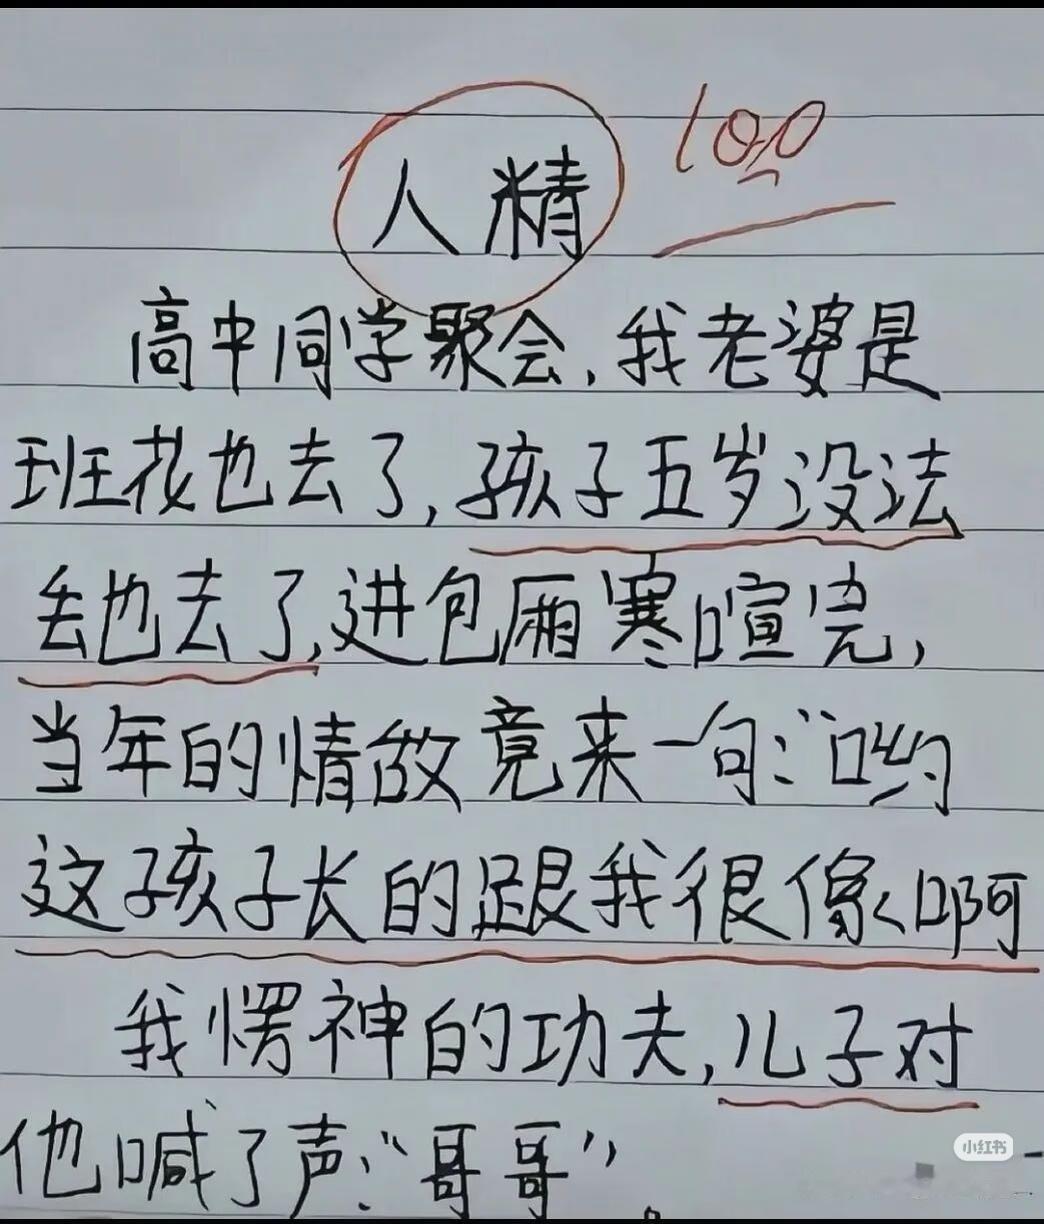 人精
100
高中同学聚会,我老婆是
班花也去了,孩子五岁没法
丢也去了,进包厢寒喧完,
当年的情敌竟来一句:“哟
这孩子长的跟我很像啊
我愣神的功夫,儿子对
他喊了声:“哥哥”。
小红书